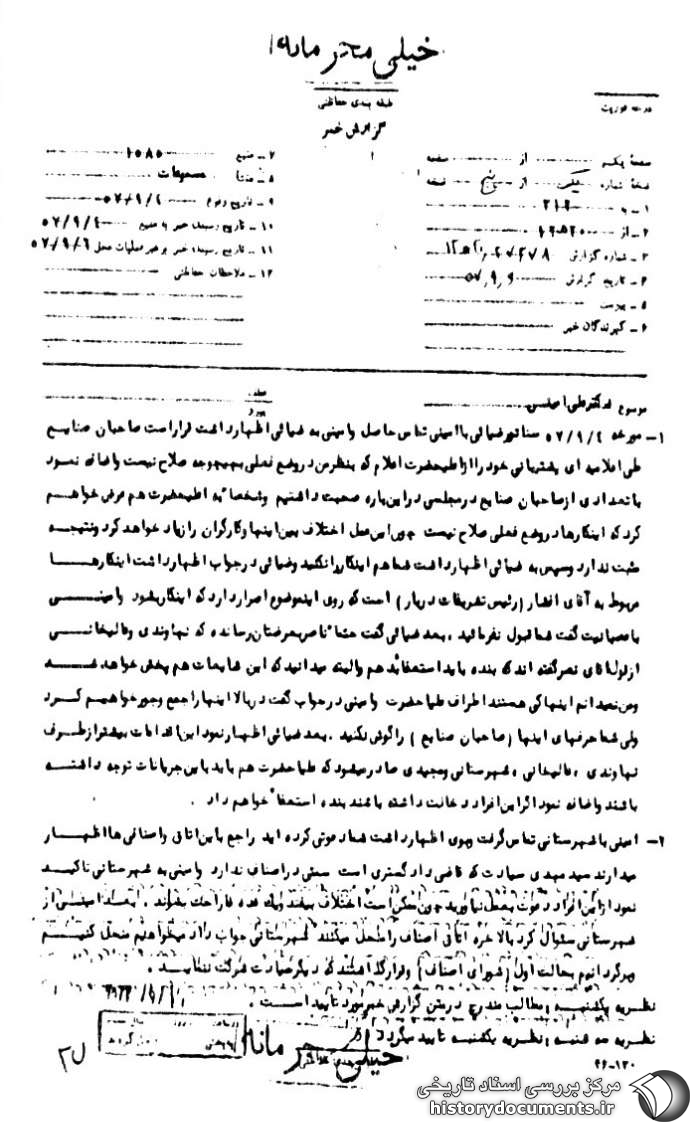 خیلی محرمانه
طبقه بندی حفاظتی
درجه فوریت
گزارش خبر
صفحهٔ یکم از صفحه
نسخهٔ شماره یک از پنج نسخه
۱ـ به ۳۱۲
۲ـ از
۳ـ شماره گزارش
۴ـ تاریخ گزارش ۵۷٫۹٫۶
۵ـ پیوست
۶ـ گیرندگان خبر
۷ـ منبع ۱۰۸۵
۸ـ منشأ مسموعات
۹ـ تاریخ وقوع ۵۷/۹/۴
۱۰ـ تاریخ رسیدن خبر به منبع ۵۷/۹/۴
۱۱ـ تاریخ رسیدن خبر به رهبر عملیات محل ۵۷/۹/۶
۱۲ـ ملاحظات حفاظتی
موضوع دکتر علی امینی
۱ـ مورخه ۵۷/۹/۴ سناتور ضیائی با امینی تماس حاصل و امینی به ضیائی اظهار داشت قرار است صاحبان صنایع
طی اعلامیه ای پشتیبانی خود را از اعلیحضرت اعلام که بنظر من در وضع فعلی بهیچوجه صلاح نیست و اضافه نمود
با تعدادی از صاحبان صنایع در مجلسی در این باره صحبت داشتیم و شخصا" به اعلیحضرت هم عرض خواهم
کرد که اینکارها در وضع فعلی صلاح نیست چون این عمل اختلاف بین اینها و کارگران را زیاد خواهد کرد و نتیجه
مثبت ندارد و سپس به ضیائی اظهار داشت شما هم اینکار را نکنید و ضیائی در جواب اظهار داشت اینکارهـا
مربوط به آقای افشار (رئیس تشریفات دربار) است که روی اینموضوع اصرار دارد که اینکار بشود و امینـی
با عصبانیت گفت شما قبول نفرمائید . بعد ضیائی گفت حتما" ناصر بعرضتان رسانده که نهاوندی و عالیخانی
از قول آقای نصر گفته اند که بنده باید استعفا بدهم والبته میدانید که این شایعات هم پخش خواهد شـد
ومن نمیدانم اینها کی هستند اطراف علیاحضرت و امینی در جواب گفت در بالا اینها را جمع و جور خواهیم کـرد
ولی شما حرفهای اینها (صاحبان صنایع) را گوش نکنید . بعد ضیائی اظهار نمود این اقدامات بیشتر از طـرف
نهاوندی ، عالیخانی ، شهرستانی و مجیدی صادر میشود که علیاحضرت هم باید باین جریانات توجه داشتـه
باشند و اضافه نمود اگر این افراد دخالت داشته باشند بنده استعفا" خواهم داد .
۲ـ امینی با شهرستانی تماس گرفت و بوی اظهار داشت شما دعوتی کرده اید راجع باین اتاق واصنافی ها اظهـار
میدارند سید مهدی سیادت که قاضی دادگستری است سمتی در اصناف ندارد و امینی به شهرستانی تاکیـد
نمود از این افراد دعوت بعمل نیاورید چون ممکن است اختلاف بیفتد و یک عده ناراحت بشوند . بعدا امینـی از
شهرستانی سئوال کرد بالاخره اتاق اصناف را منحل میکنند شهرستانی جواب داد میخواهیم منحل کنیـم
وبرگردانیم بحالت اول (شورای اصناف) و قرار گذاشتند که دیگر سیادت شرکت ننمایـد .
نظریه یکشنبـه : مطالب مندرج در متن گزارش خبر مورد تایید اسـت .
نظریه سه شنبه : نظریه یکشنبه تایید میگردد
خیلی محرمانه
۴۶-۱۲۰
مرکز بررسی اسناد تاریخی
historydocuments.ir